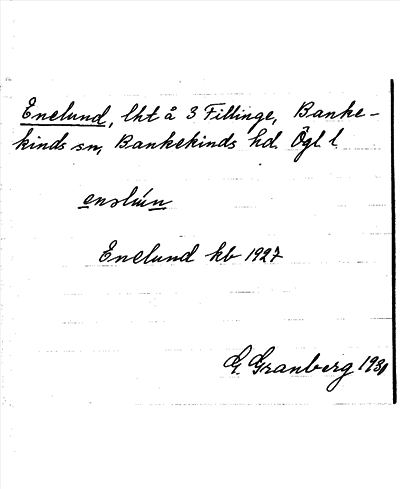 Enelund, lht å 3 Fillinge, Banke-
kinds sn, Bankekinds hd. Ögl l
Enelund kb 1927
G. Granberg